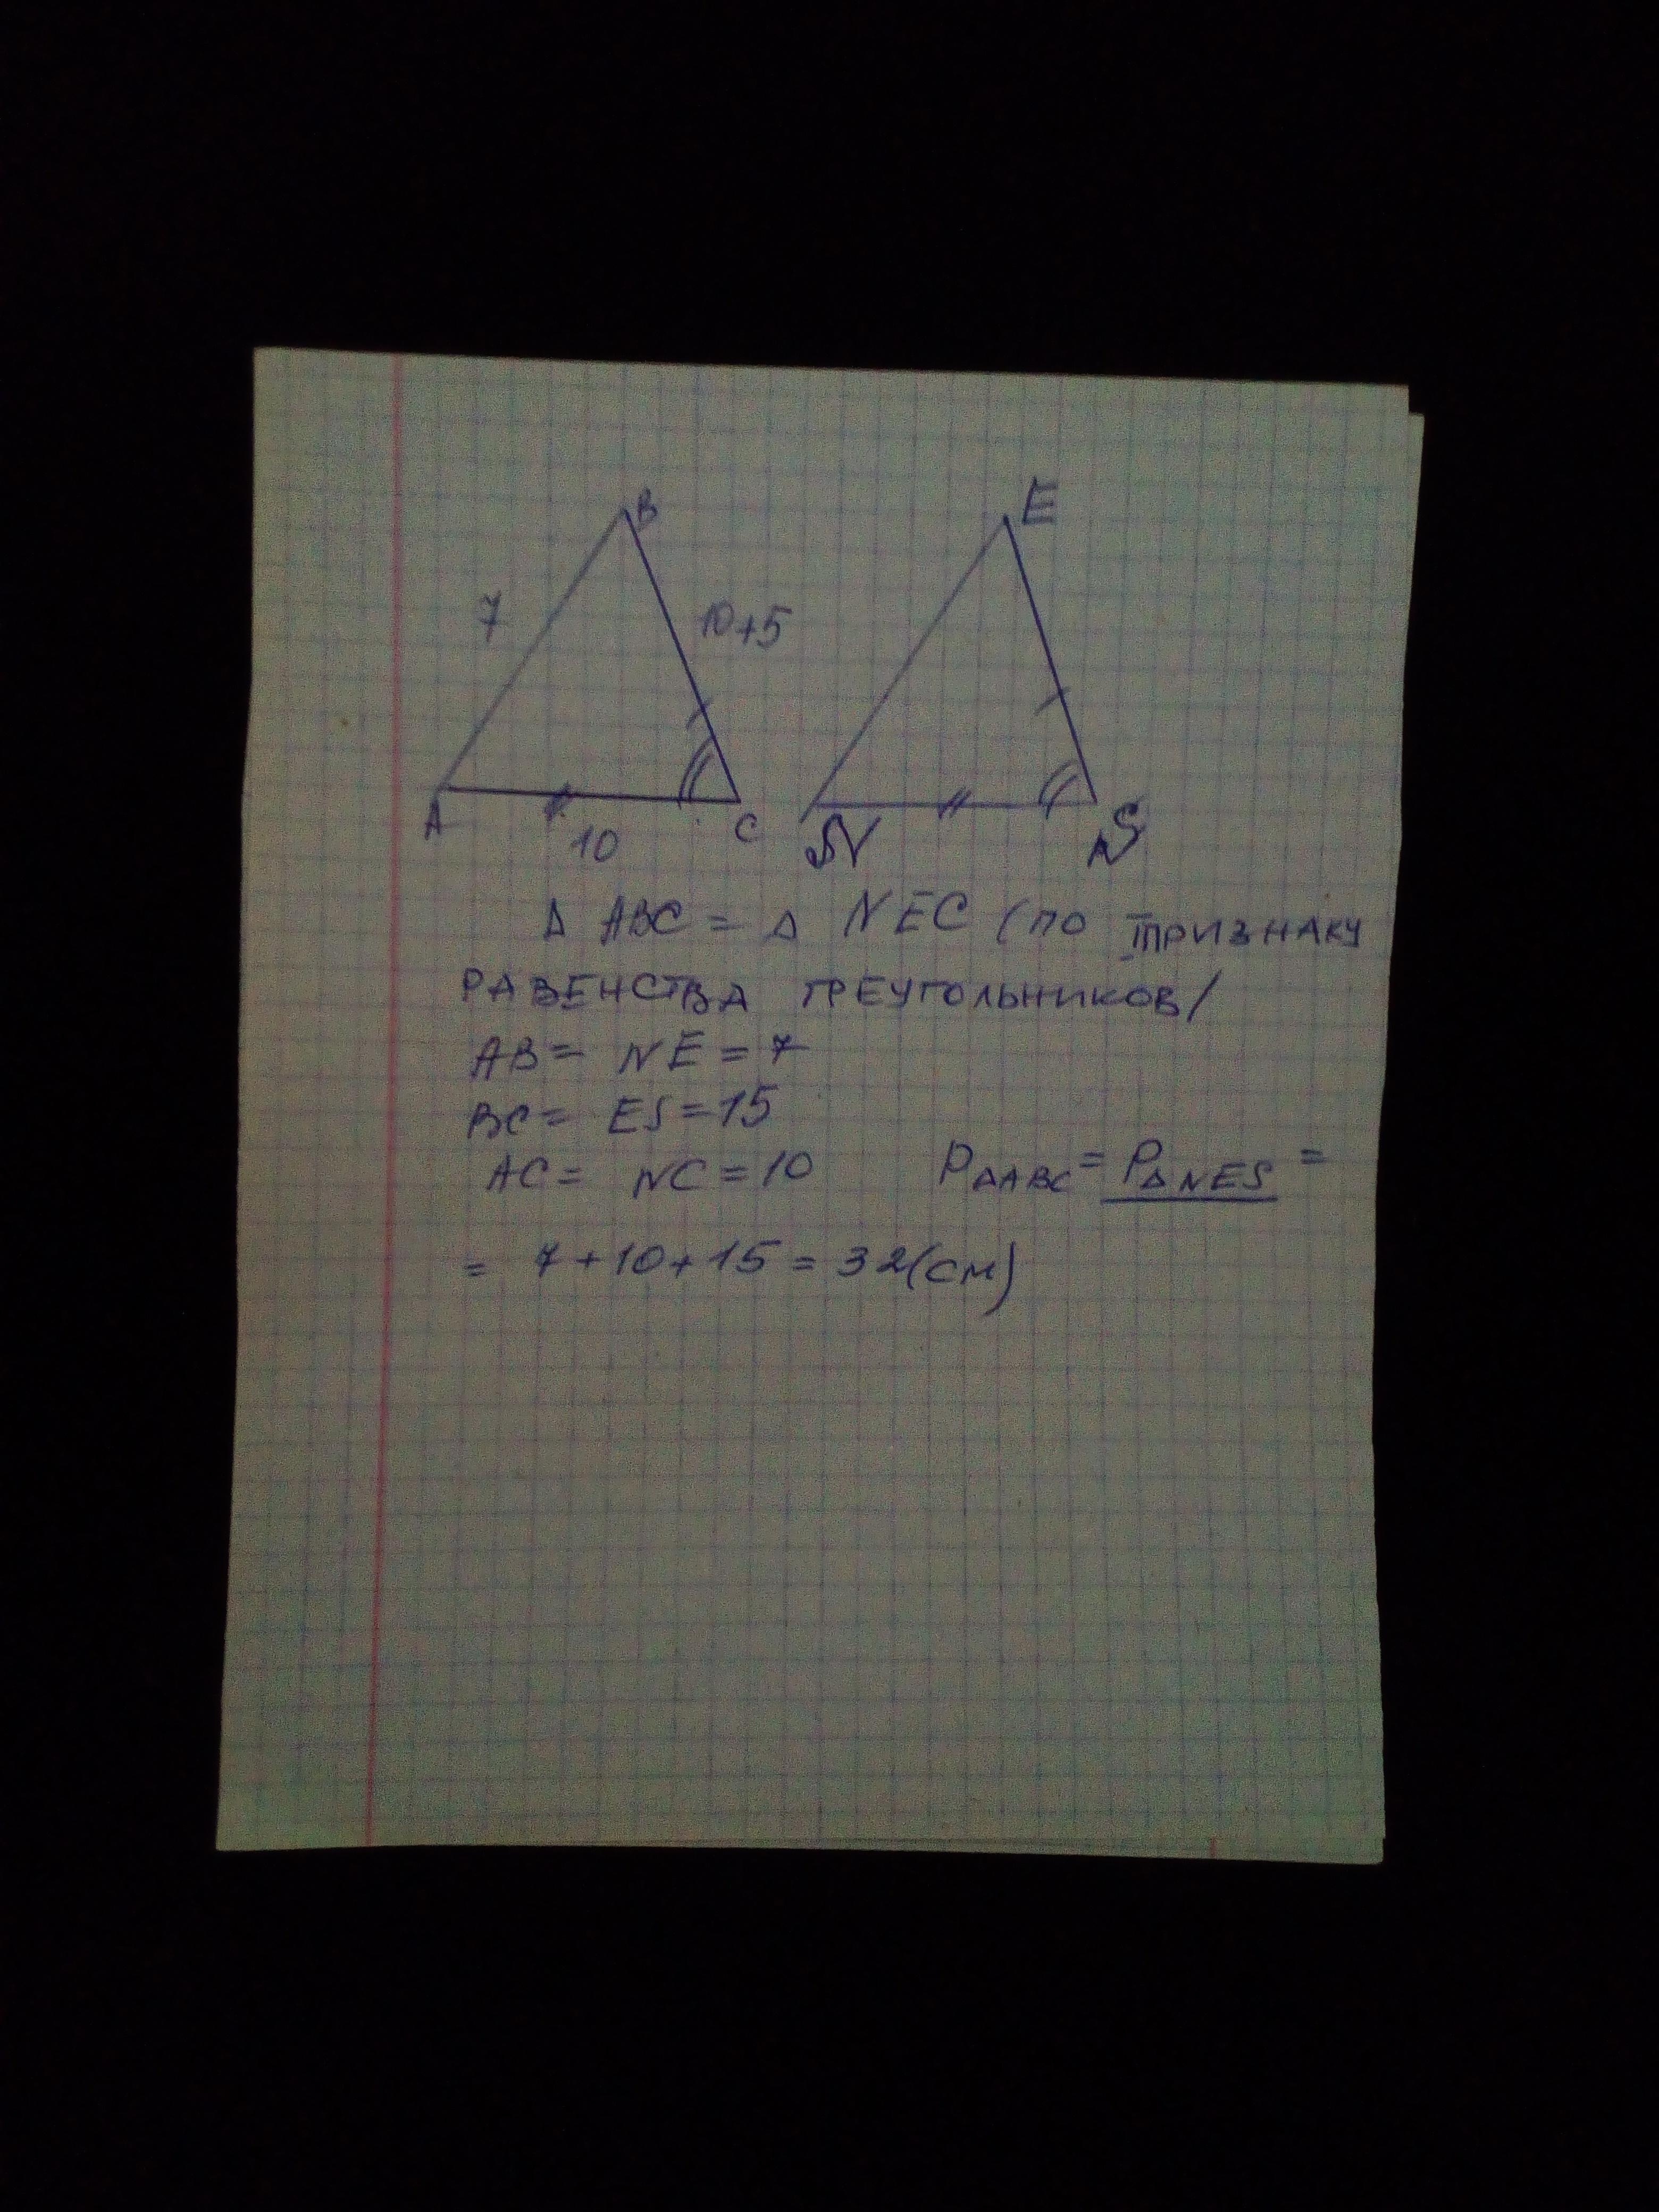 B
E
7
10+5
A
10
C
N
S
Δ ABC = Δ NEC (ПО ПРИЗНАКУ
РАВЕНСТВА ТРЕУГОЛЬНИКОВ/
AB = NE = 7
BC = ES = 15
AC = NC = 10 PΔABC = PΔNES =
= 7 + 10 + 15 = 32(СМ)